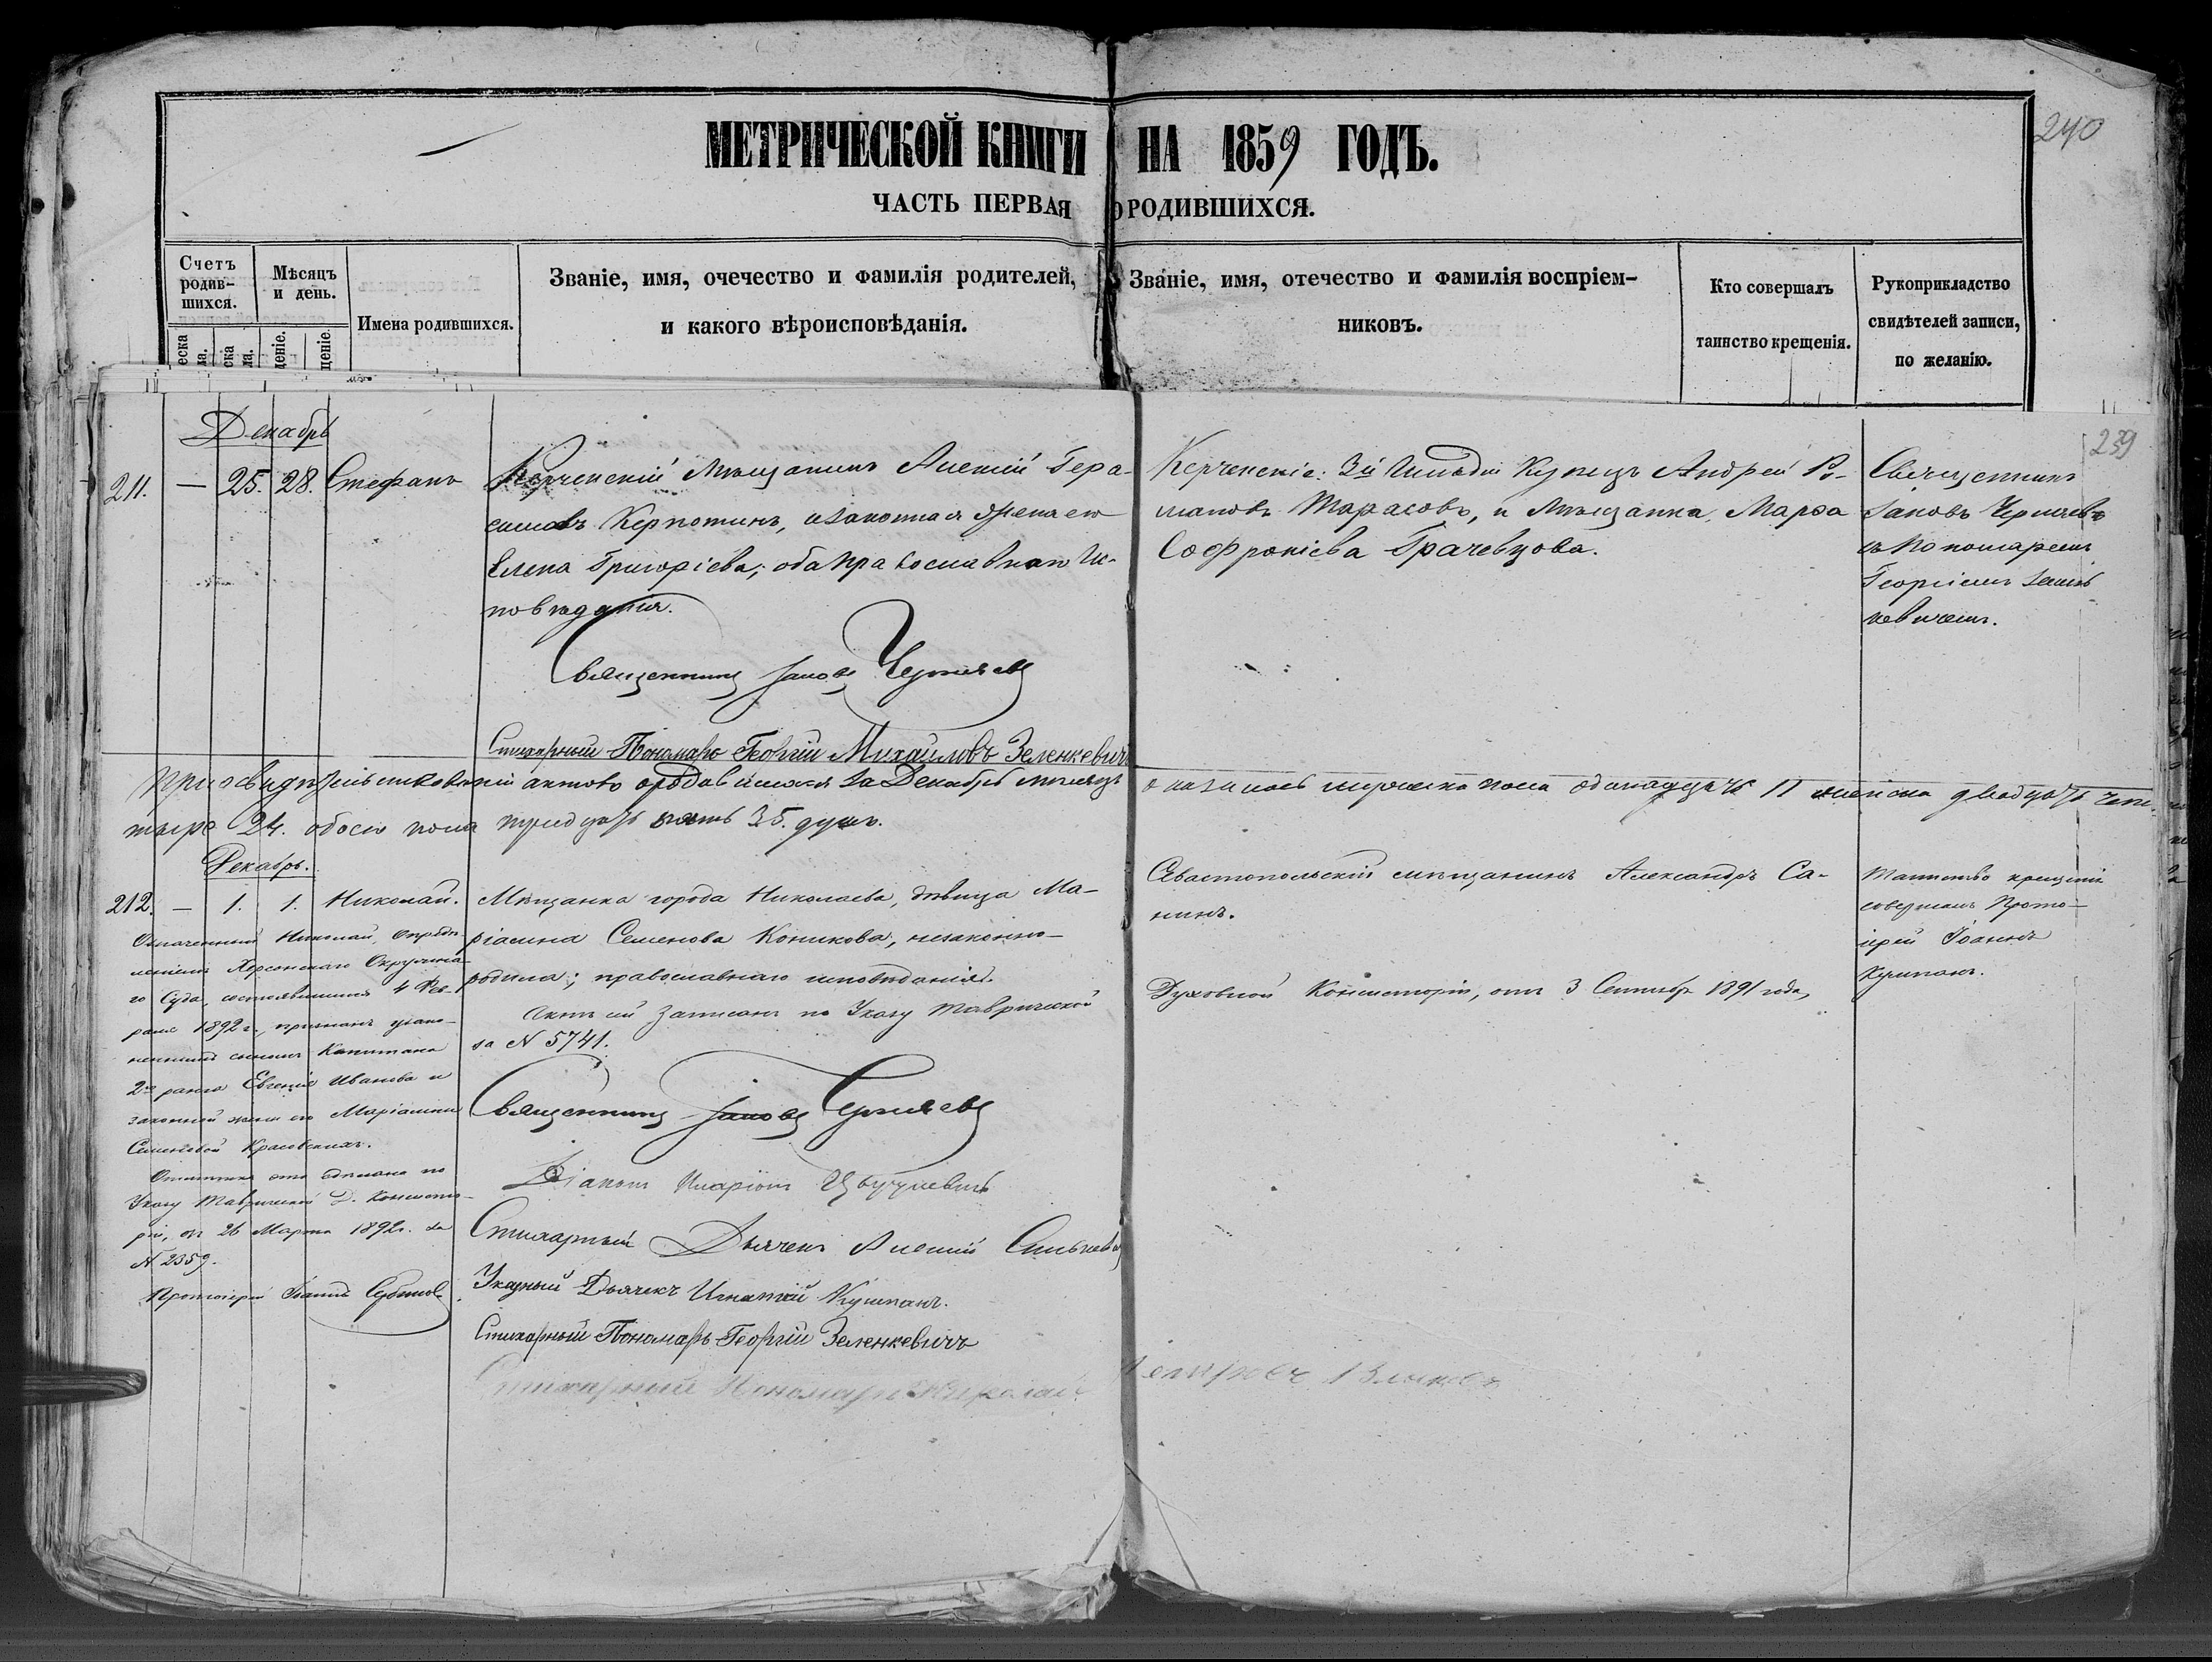 МЕТРИЧЕСКОЙ КНИГИ НА 1859 ГОДЪ.
240
ЧАСТЬ ПЕРВАЯ О РОДИВШИХСЯ.
Счетъ родив-шихся.
Мѣсяцъ и день.
Имена родившихся.
Званіе, имя, очечество и фамилія родителей,
и какого вѣроисповѣданія.
Званіе, имя, отечество и фамилія воспріем-
никовъ.
Кто совершалъ
таинство крещенія.
Рукоприкладство
свидѣтелей записи,
по желанію.
239
Декабрь
211. — 25. 28. Стефанъ
Керченскій Мѣщанинъ Алексій Гера-
симовъ Керпотинъ, изаконная жена его
Елена Григоріева; оба православнаго Ис-
повѣданія.
Керченскіе: 3й Гильдіи Купецъ Андрей Ро-
мановъ Тарасовъ, и Мѣщанка, Марѳа
Софроніева Грачевцова.
Священникъ
Іаковъ Черняевъ
съ Пономаремъ
Георгіемъ Зелен
кевичемъ.
Священникъ Іаковъ Черняевъ
Стихарный Пономарь Георгій Михайловъ Зеленкевичъ
При свидѣтельствованіи актовъ ородившихся За Декабрь мѣсяцъ оказалось мужеска пола одинадцать 11 женска двадцать четы-
тыре 24. обоего пола тридцать пять 35. душъ.
Декабрь.
212. — 1. 1. Николай.
Мѣщанка города Николаева, дѣвица Ма-
ріамна Семенова Коникова, незаконно-
родила; православнаго исповѣданія.
Актъ сей записанъ по Указу Таврической
Духовной Консисторіи, отъ 3 Сентября 1891 года,
за N 5741.
Севастопольскій мѣщанинъ Александръ Са-
нинъ.
Таинство крещенія
совершалъ Прото-
іерей Іоаннъ
Кушпанъ.
Означенный Николай, опредѣ-
леніемъ Херсонскаго Окружна-
го Суда, состоявшимся 4 Фев-
раля 1892 г., признанъ узако-
неннымъ сыномъ Капитана
2го ранга Евгенія Иванова и
законной жены его Маріамны
Семеновой Красовскихъ.
Отмѣтка эта сдѣлана по
Указу Таврической Д. Консисто-
ріи, отъ 26 Марта 1892 г. за
N 2359.
Протоіерей Іоаннъ
Священникъ Іаковъ Черняевъ
Діаконъ Иларіонъ
Стихарный Дьячекъ Алексій
Указный Дьячекъ Игнатій Кушпанъ.
Стихарный Пономарь Георгій Зеленкевичъ
Стихарный Пономарь Николай